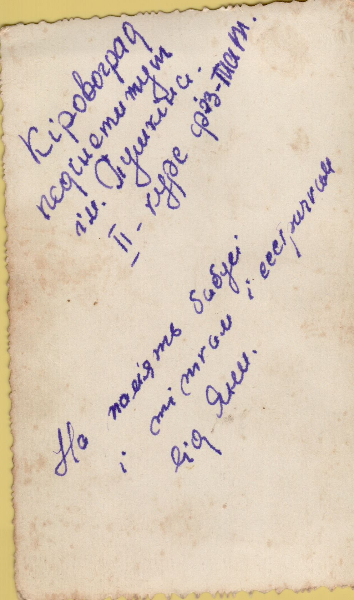 Кіровоград
педінститут
ім. Пушкіна.
II - курс фіз-мат.
На пам'ять бабусі
і тіткам і сестричкам
від Яни.